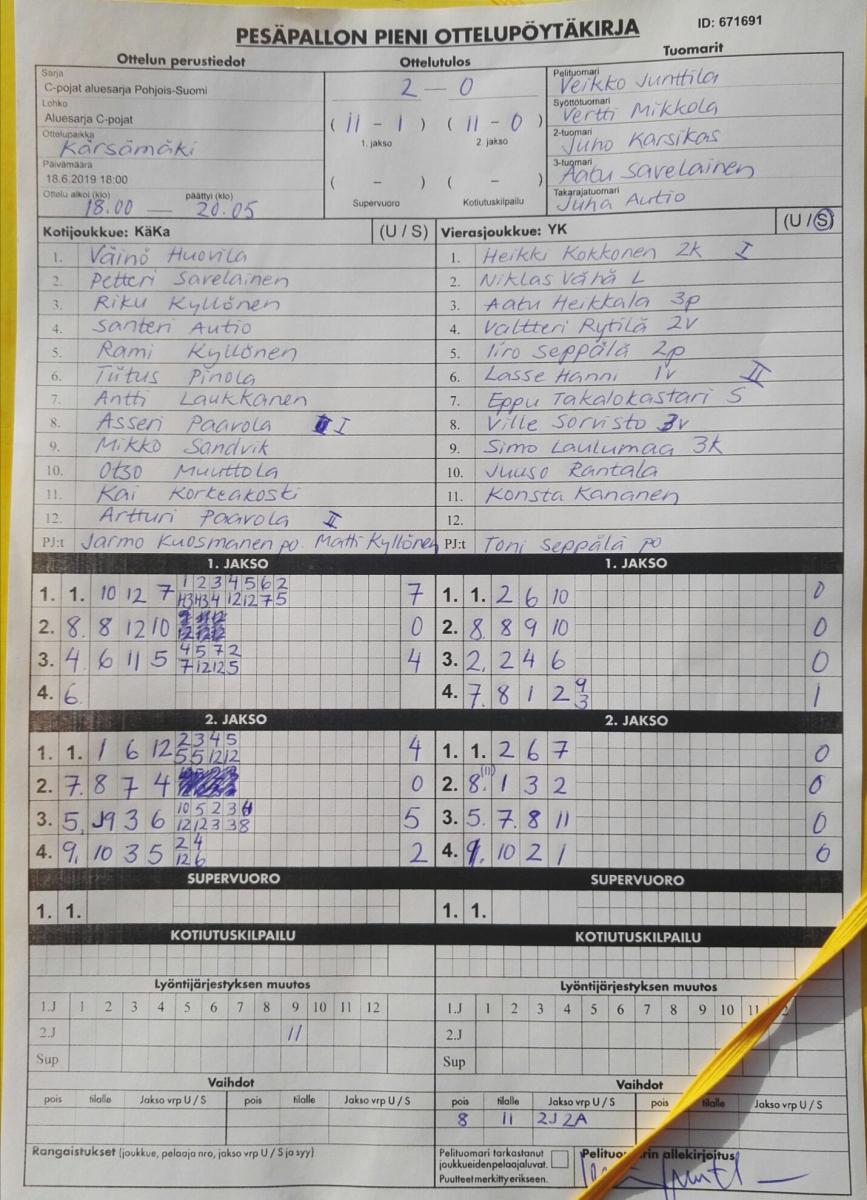 PESÄPALLON PIENI OTTELUPÖYTÄKIRJA
ID: 671691
Ottelun perustiedot
Ottelutulos
Tuomarit
Sarja
C-pojat aluesarja Pohjois-Suomi
Lohko
Aluesarja C-pojat
Ottelupaikka
Kärsämäki
Päivämäärä
18.6.2019 18:00
Ottelu alkoi (klo) päättyi (klo)
18.00 — 20.05
2 — 0
( 11 - 1 ) ( 11 - 0 )
1. jakso 2. jakso
( - ) ( - )
Supervuoro Kotiutuskilpailu
Pelituomari
Veikko Junttila
Syöttötuomari
Vertti Mikkola
2-tuomari
Juho Karsikas
3-tuomari
Aatu Savelainen
Takarajatuomari
Juha Autio
Kotijoukkue: KäKa (U / S)
1. Väinö Huovila
2. Petteri Savelainen
3. Riku Kyllönen
4. Santeri Autio
5. Rami Kyllönen
6. Tiitus Pinola
7. Antti Laukkanen
8. Asseri Paavola I
9. Mikko Sandvik
10. Otso Muuttola
11. Kai Korkeakoski
12. Artturi Paavola II
PJ:t Jarmo Kuosmanen po. Matti Kyllönen
Vierasjoukkue: YK (U / S)
1. Heikki Kokkonen 2k I
2. Niklas Vähä L
3. Aatu Heikkala 3p
4. Valtteri Rytilä 2v
5. Iiro Seppälä 2p
6. Lasse Hanni 1v II
7. Eppu Takalokastari S
8. Ville Sorvisto 3v
9. Simo Laulumaa 3k
10. Juuso Rantala
11. Konsta Kananen
12.
PJ:t Toni Seppälä po
1. JAKSO
1 2 3 4 5 6 2
1. 1. 10 12 7 7
2. 8. 8 12 10 0
4 5 7 2
3. 4. 6 11 5 7 12 12 5 4
4. 6.
1. JAKSO
1. 1. 2 6 10 0
2. 8. 8 9 10 0
3. 2. 2 4 6 0
4. 7. 8 1 2 9 3 1
2. JAKSO
2 3 4 5
1. 1. 1 6 12 5 5 12 12 4
2. 7. 8 7 4 0
10 5 2 3
3. 5. 9 3 6 12 12 3 3 8 5
2 4
4. 9. 10 3 5 12 6 2
2. JAKSO
1. 1. 2 6 7 0
2. 8. (11) 1 3 2 0
3. 5. 7. 8 11 0
4. 9. 10 2 1 0
SUPERVUORO
1. 1.
SUPERVUORO
1. 1.
KOTIUTUSKILPAILU
KOTIUTUSKILPAILU
Lyöntijärjestyksen muutos
1.J 1 2 3 4 5 6 7 8 9 10 11 12
2.J 11
Sup
Lyöntijärjestyksen muutos
1.J 1 2 3 4 5 6 7 8 9 10 11 2
2.J
Sup
Vaihdot
pois tilalle Jakso vrp U / S pois tilalle Jakso vrp U / S
Vaihdot
pois tilalle Jakso vrp U / S pois tilalle Jakso vrp U / S
8 11 2J 2A
Rangaistukset (joukkue, pelaaja nro, jakso vrp U / S ja syy)
Pelituomari tarkastanut
joukkueiden pelaajaluvat.
Puutteet merkitty erikseen.
allekirjoitus